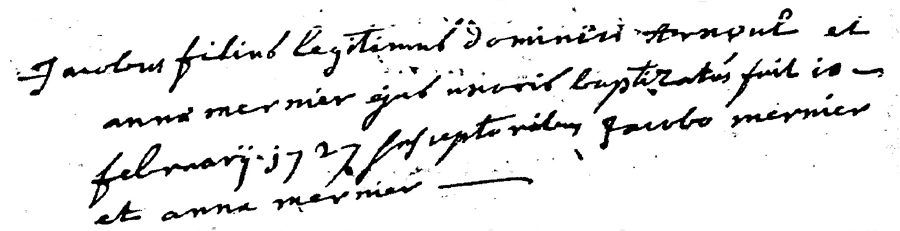 Jacobus filius legitimus dominici Arnout et
anna mernier ejus uxoris baptizatus fuit 10
februarij 1727 susceptoribus Jacobo mernier
et anna mernier